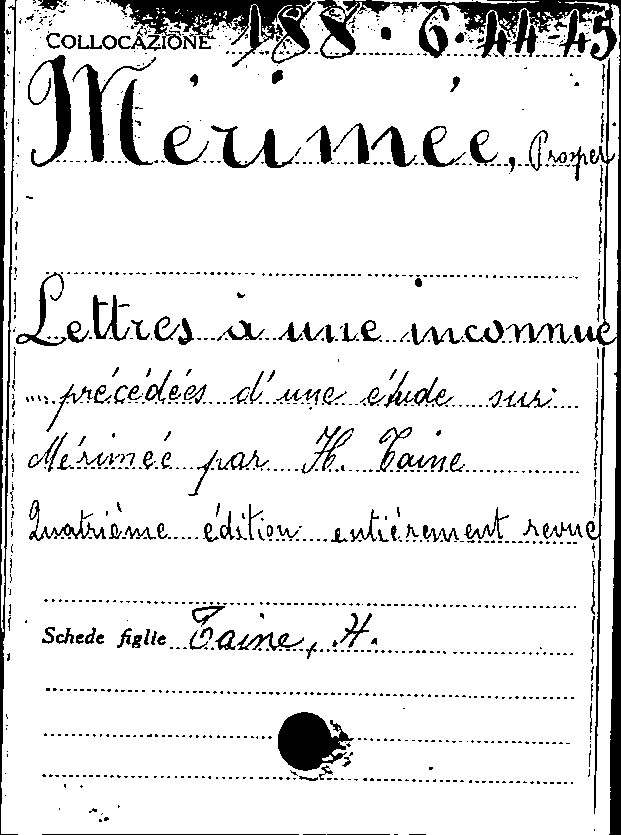 COLLOCAZIONE 188.6.44-45
Mérimée, Prosper
Lettres à une inconnue
... précédées d'une étude sur
Mérimée par H. Taine
Quatrième édition entiérement revue
Schede figlie Taine, H.